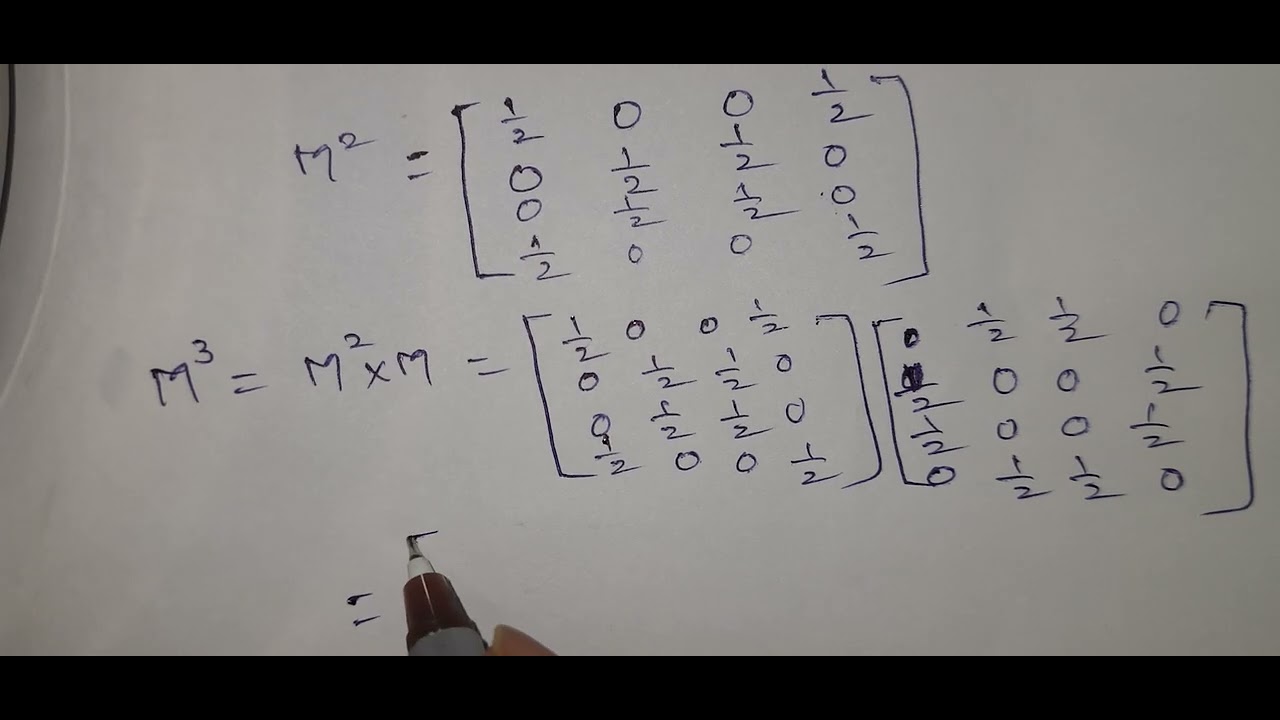 M² = [ 1/2 0 0 1/2
0 1/2 1/2 0
0 1/2 1/2 0
1/2 0 0 1/2 ]
M³ = M² × M = [ 1/2 0 0 1/2 ] [ 0 1/2 1/2 0 ]
0 1/2 1/2 0 1/2 0 0 1/2
0 1/2 1/2 0 1/2 0 0 1/2
1/2 0 0 1/2 0 1/2 1/2 0
=